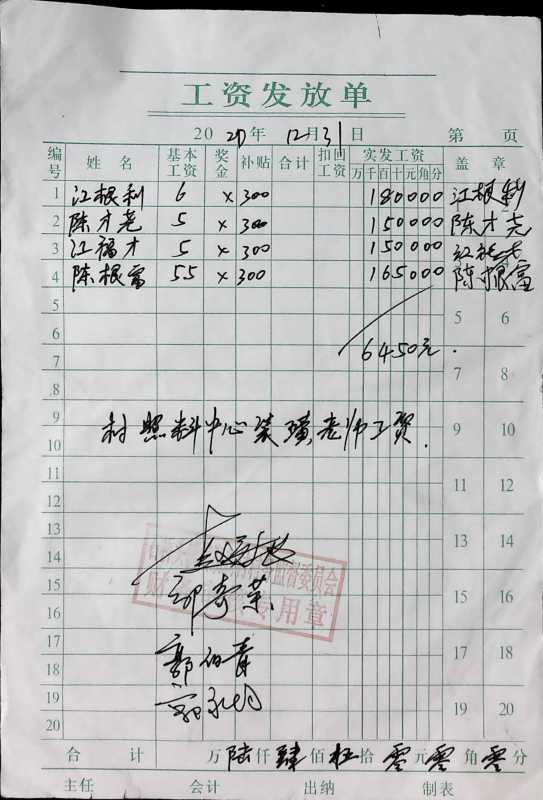 工资发放单
2020年 12月31日 第 页
编号 姓名 基本工资 奖金 补贴 合计 扣回工资 实发工资 万千百十元角分 盖章
1 江根利 6 × 300 180000 江根利
2 陈才尧 5 × 300 150000 陈才尧
3 江福才 5 × 300 150000
4 陈根富 5.5 × 300 165000 陈根富
5 5 6
6 6450元.
7 7 8
8
9 村照料中心装璜老师工资. 9 10
10
11 11 12
12
13 13 14
14 监督委员会
15 郭寿荣 15 16
16 财 专用章
17 郭伯青 17 18
18
19 19 20
20
合计 万陆仟肆佰伍拾零元零角零分
主任 会计 出纳 制表